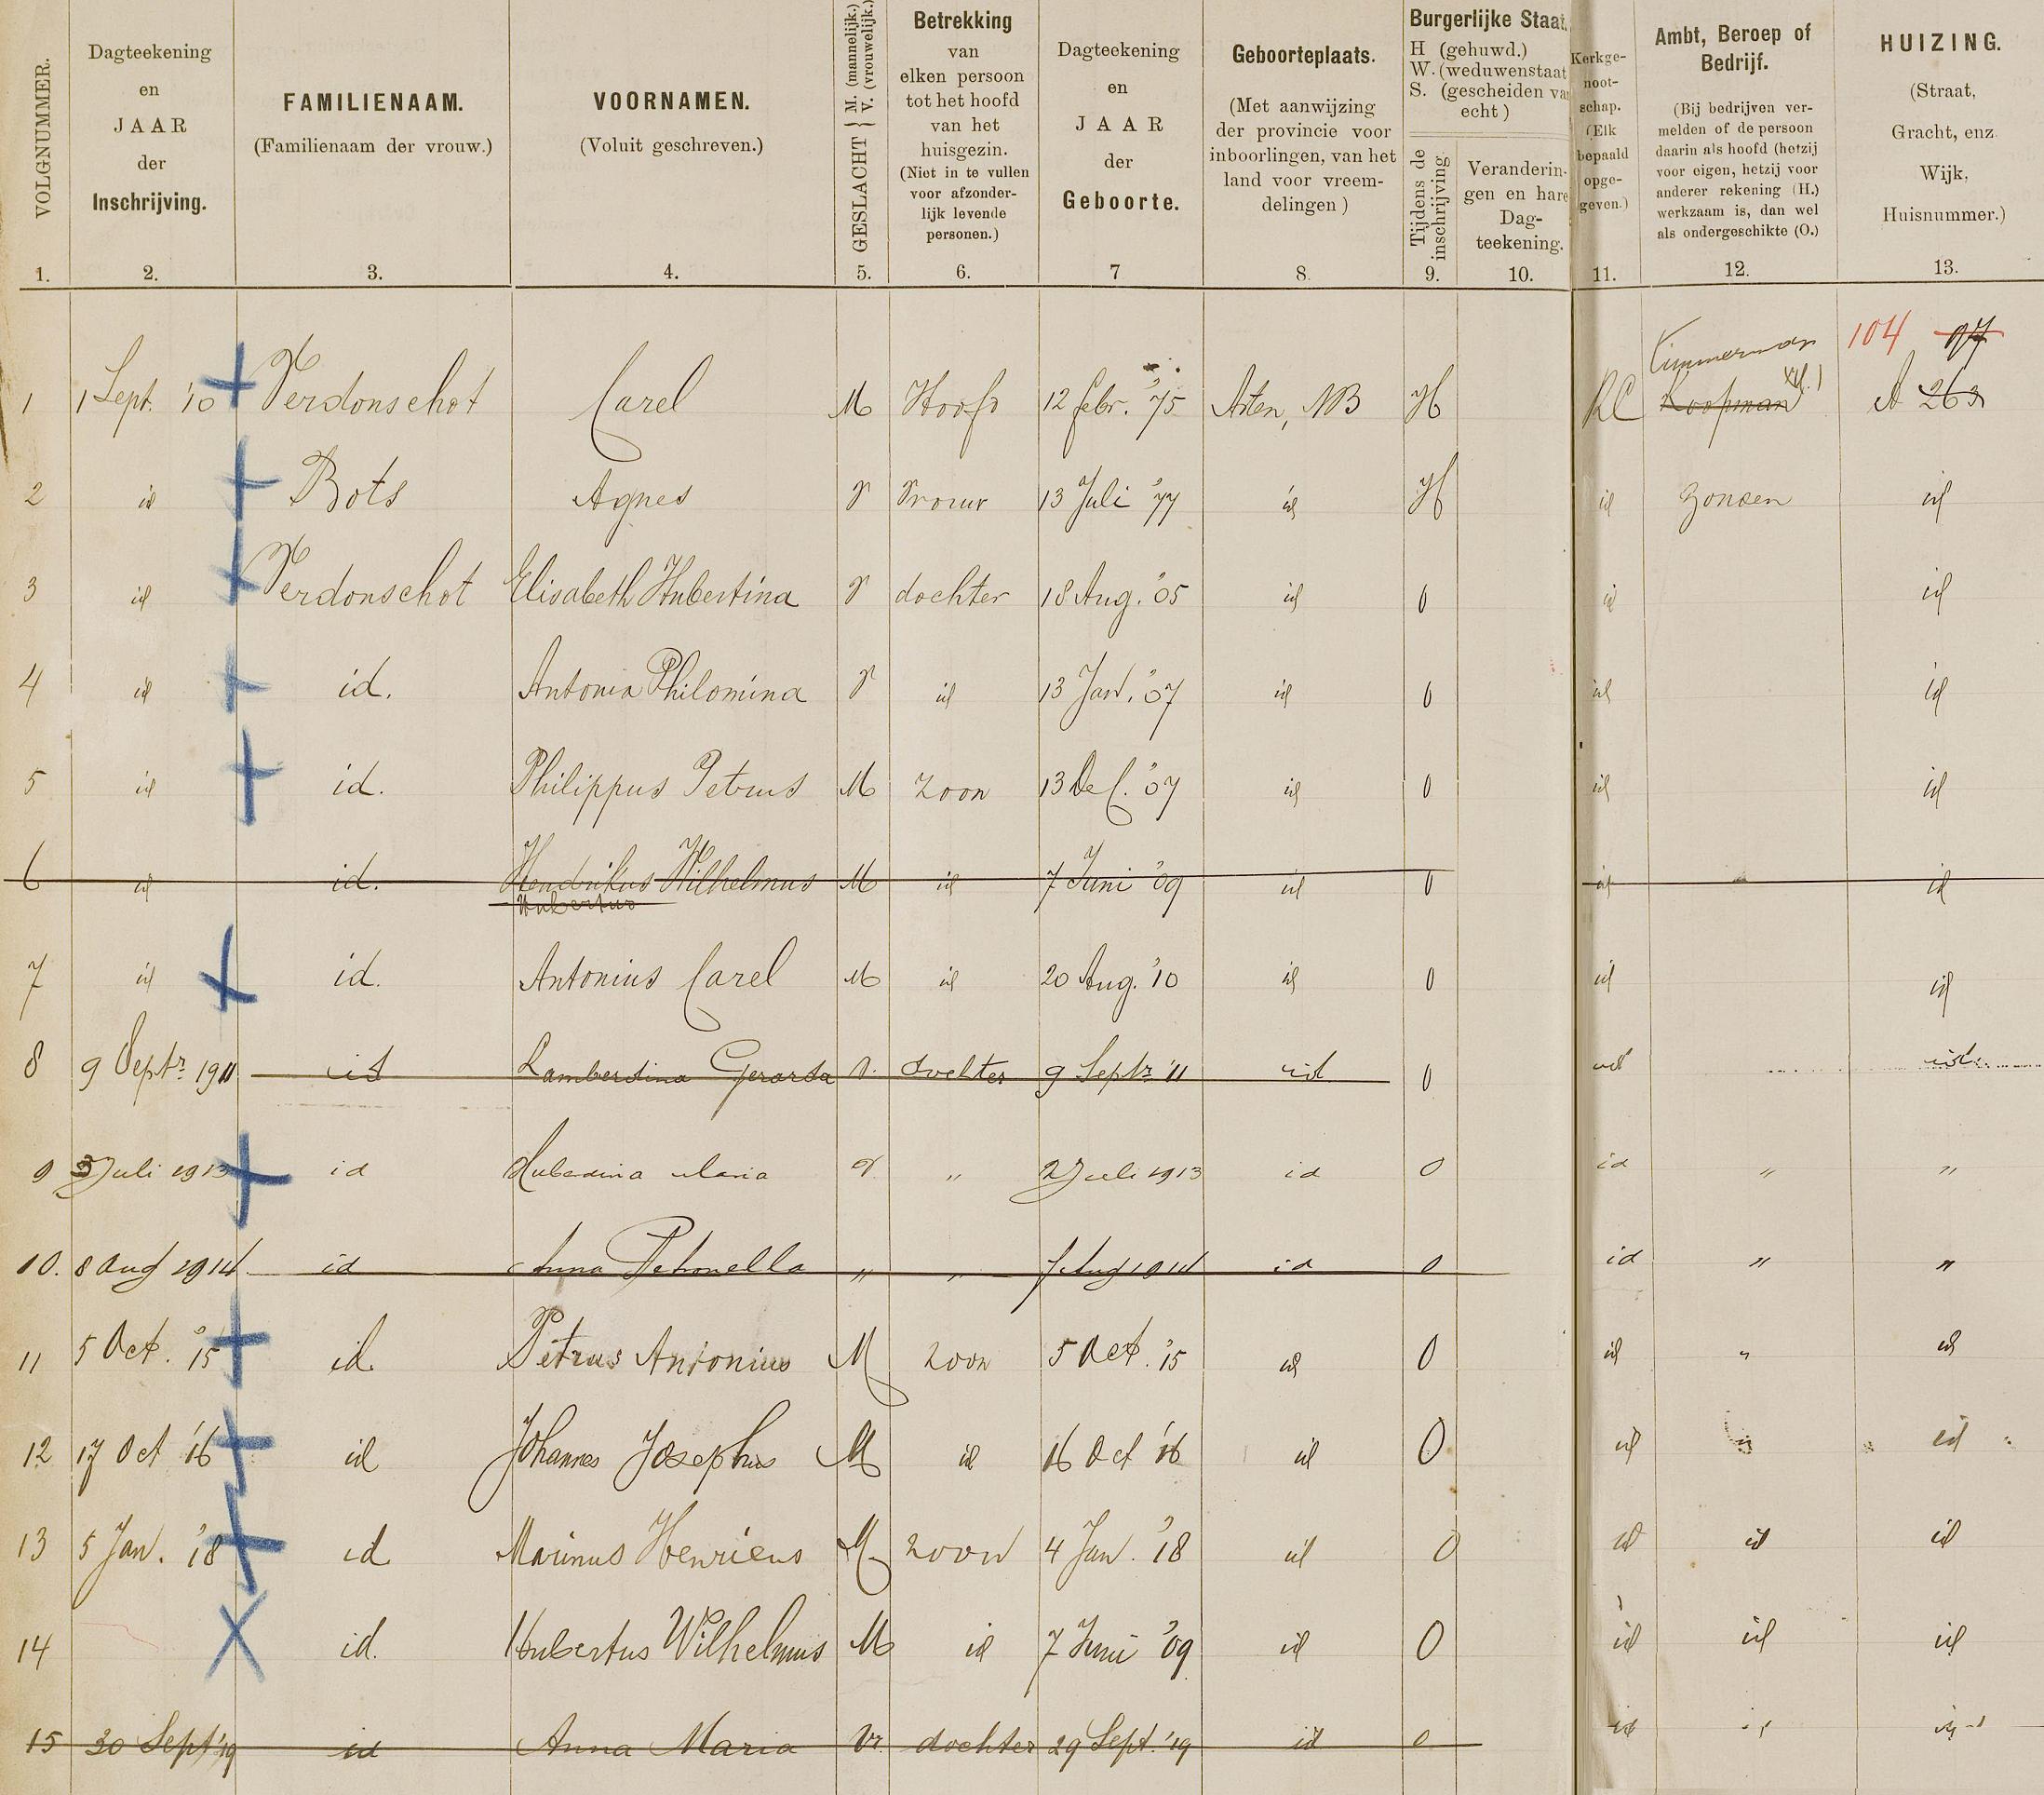 VOLGNUMMER.
Dagteekening
en
JAAR
der
Inschrijving.
FAMILIENAAM.
(Familienaam der vrouw.)
VOORNAMEN.
(Voluit geschreven.)
GESLACHT { M. (mannelijk.) V. (vrouwelijk.)
Betrekking
van
elken persoon
tot het hoofd
van het
huisgezin.
(Niet in te vullen
voor afzonder-
lijk levende
personen.)
Dagteekening
en
JAAR
der
Geboorte.
Geboorteplaats.
(Met aanwijzing
der provincie voor
inboorlingen, van het
land voor vreem-
delingen)
Burgerlijke Staat.
H (gehuwd.)
W. (weduwenstaat
S. (gescheiden van
echt)
Tijdens de
inschrijving
Veranderin-
gen en hare
Dag-
teekening.
Kerkge-
noot-
schap.
(Elk
bepaald
opge-
geven.)
Ambt, Beroep of
Bedrijf.
(Bij bedrijven ver-
melden of de persoon
daarin als hoofd (hetzij
voor eigen, hetzij voor
anderer rekening (H.)
werkzaam is, dan wel
als ondergeschikte (O.)
HUIZING.
(Straat,
Gracht, enz.
Wijk,
Huisnummer.)
1. 2. 3. 4. 5. 6. 7 8. 9. 10. 11. 12. 13.
Timmerman 104 97
1 1 Sept. '10 Verdonschot Carel M Hoofd 12 febr. '75 Asten, NB H RC Koopman A 263
2 id Bots Agnes V Vrouw 13 Juli '77 id H id zonder id
3 id Verdonschot Elisabeth Hubertina V dochter 18 Aug. '05 id 0 id id
4 id id. Antonia Philomina V id 13 Jan. '07 id 0 id id
5 id id. Philippus Petrus M zoon 13 Dec. '07 id 0 id id
6 id id. Hendrikus Wilhelmus M id 7 Juni '09 id 0 id id
Hubertus
7 id id. Antonius Carel M id 20 Aug. '10 id 0 id id
8 9 Septr. 1911 id Lamberdina Gerarda V. dochter 9 Septr '11 id 0 id id
9 3 Juli 1913 id Huberdina Maria V. " 2 Juli 1913 id 0 id " "
10. 8 Aug 1914 id Anna Petronella " " 7 Aug 1914 id 0 id " "
11 5 Oct. '15 id. Petrus Antonius M zoon 5 Oct. '15 id 0 id " id
12 17 Oct '16 id Johannes Josephus M id 16 Oct '16 id 0 id id id
13 5 Jan. '18 id Marinus Henricus M zoon 4 Jan. '18 id 0 id id id
14 id. Hubertus Wilhelmus M id 7 Juni '09 id 0 id id id
15 30 Sept '19 id Anna Maria Vr. dochter 29 Sept. '19 id 0 id id id